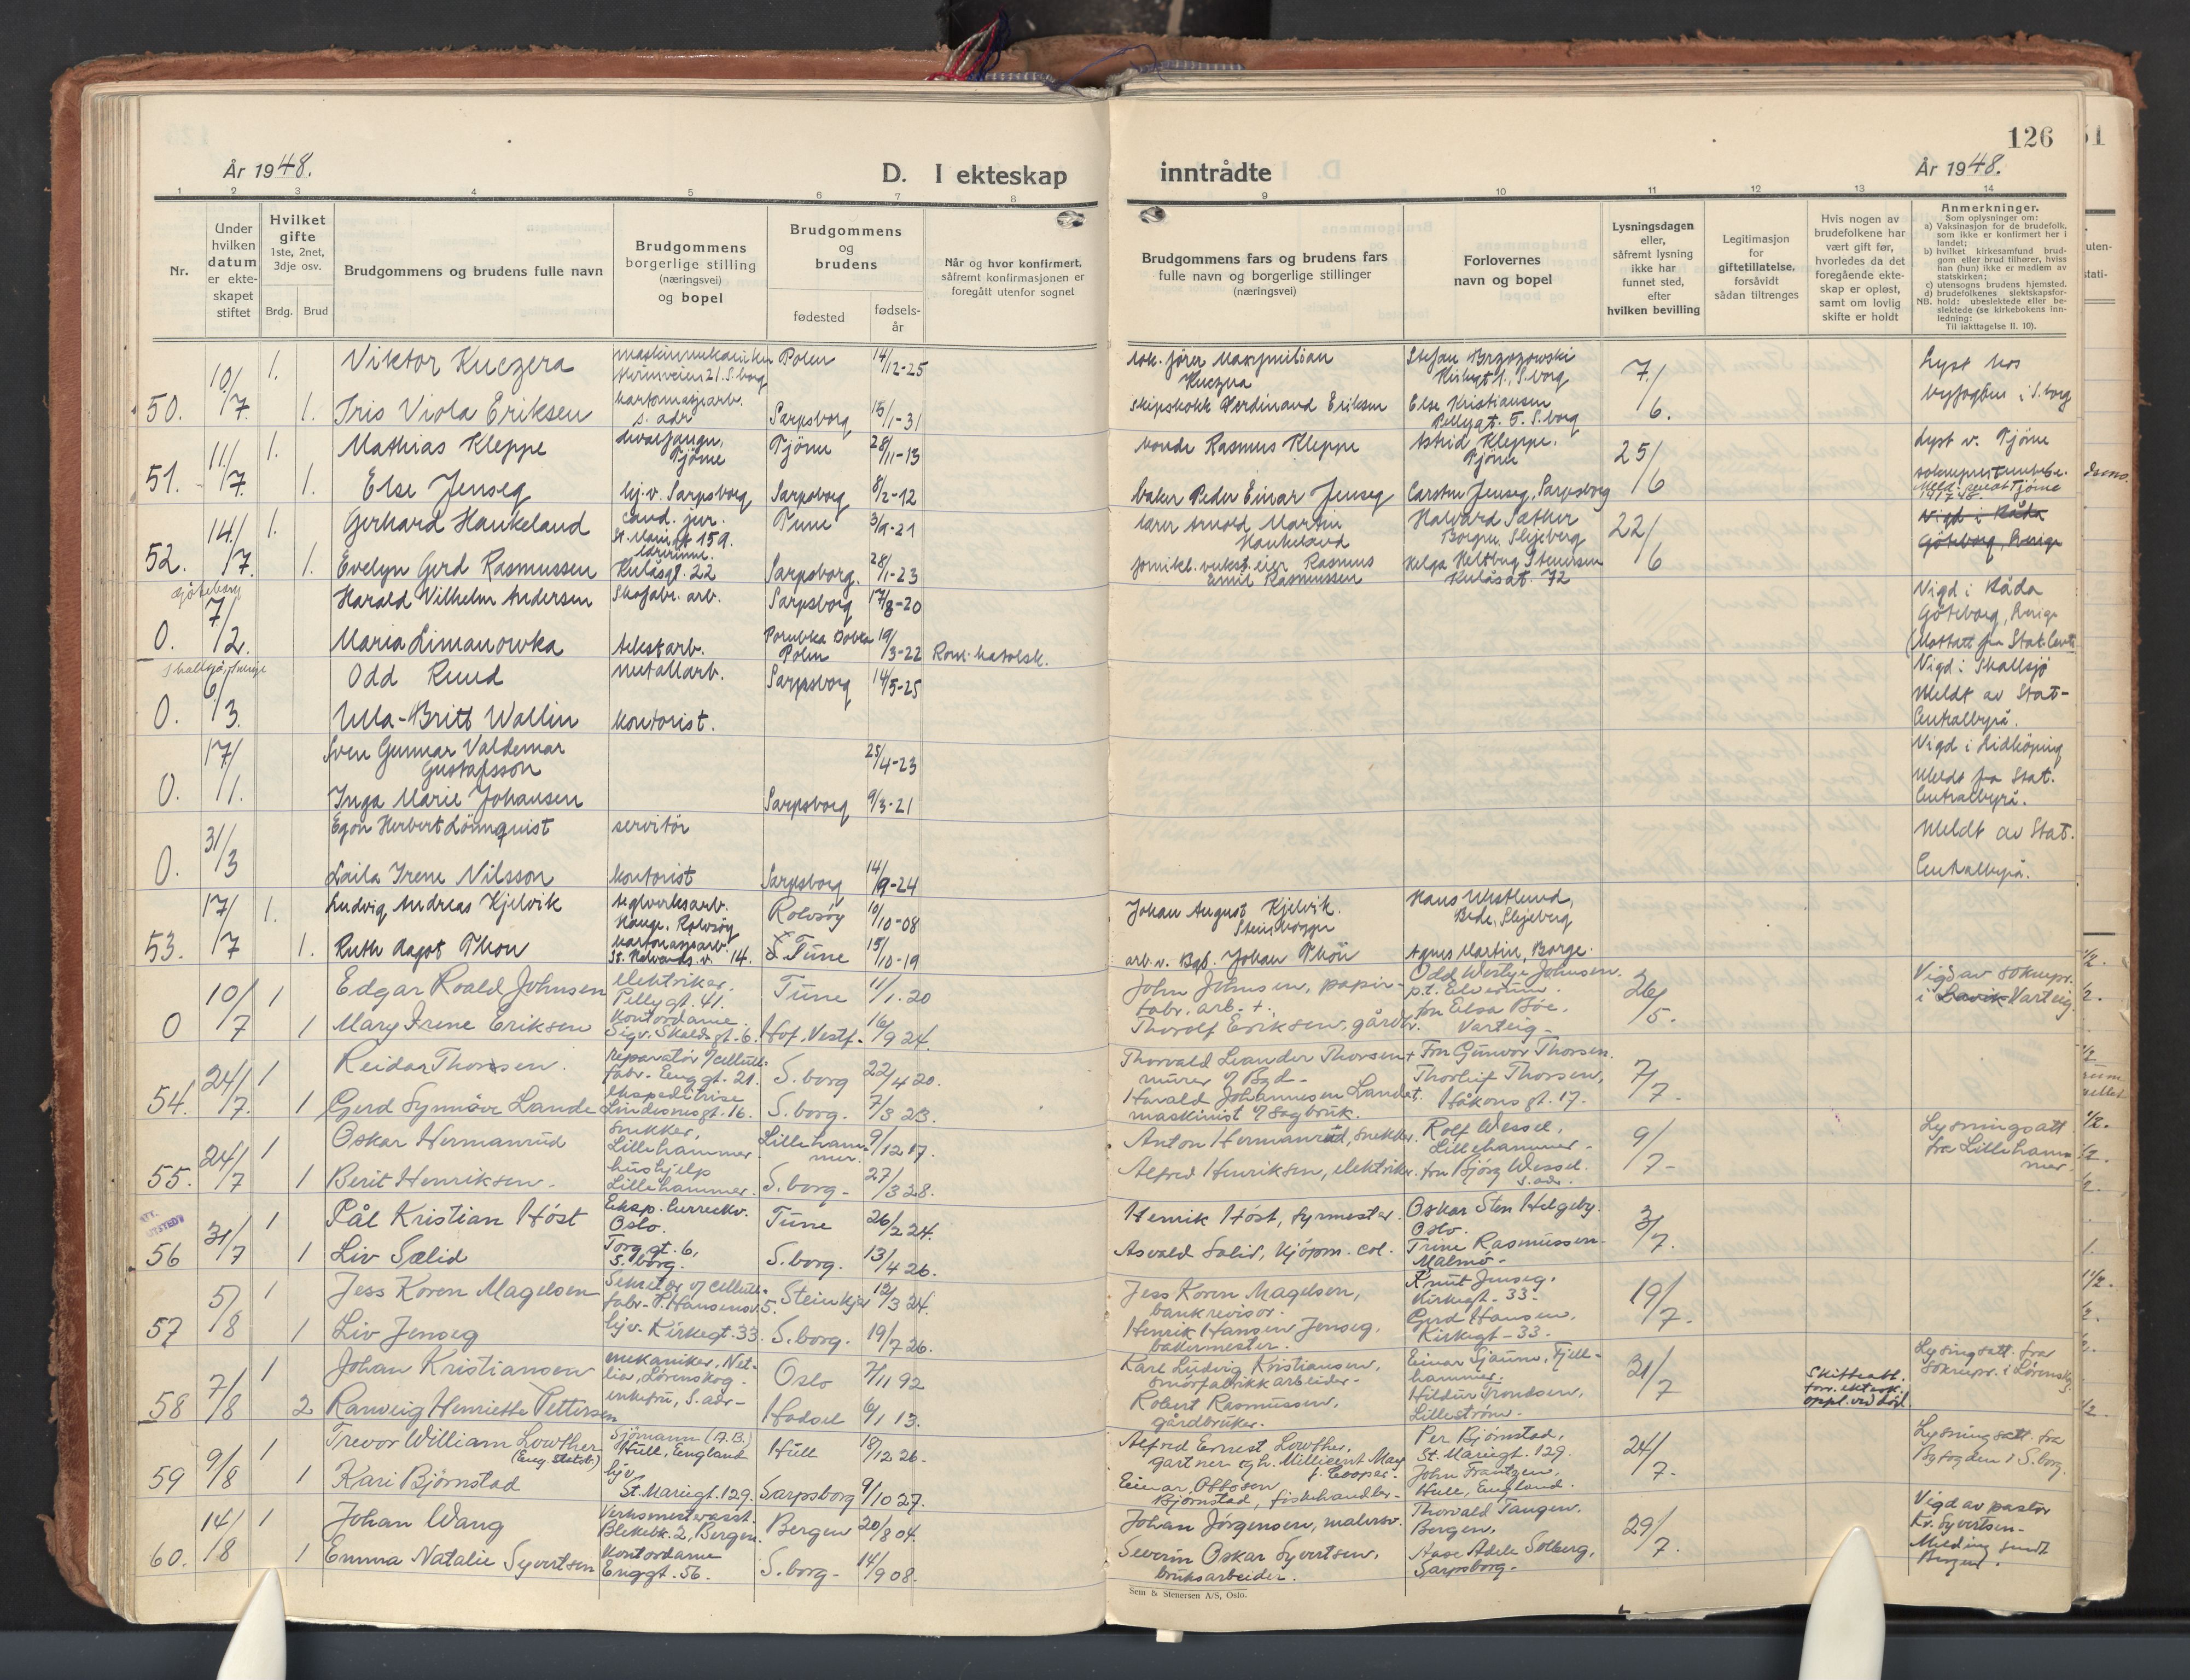 126
År 1948.
D. I ekteskap
inntrådte
År 1948.
1 2 3 4 5 6 7 8 9 10 11 12 13 14
Nr.
Under hvilken datum er ekteskapet stiftet
Hvilket gifte 1ste, 2net, 3dje osv.
Brdg. Brud
Brudgommens og brudens fulle navn
Brudgommens borgerlige stilling (næringsvei) og bopel
Brudgommens og brudens
fødested
fødselsår
Når og hvor konfirmert, såfremt konfirmasjonen er foregått utenfor sognet
Brudgommens fars og brudens fars fulle navn og borgerlige stillinger (næringsvei)
Forlovernes navn og bopel
Lysningsdagen eller, såfremt lysning ikke har funnet sted, efter hvilken bevilling
Legitimasjon for giftetillatelse, forsåvidt sådan tiltrenges
Hvis nogen av brudefolkene har vært gift før, hvorledes da det foregående ekteskap er opløst, samt om lovlig skifte er holdt
Anmerkninger.
Som oplysninger om:
a) Vaksinasjon for de brudefolk, som ikke er konfirmert her i landet;
b) hvilket kirkesamfund brudgom eller brud tilhører, hviss han (hun) ikke er medlem av statskirken;
c) utensogns brudens hjemsted.
d) brudefolkenes slektskapsforhold: ubeslektede eller beslektede (se kirkebokens innledning:
NB. Til iakttagelse II. 10).
10/7 1. Viktor Kuczera maskinmekaniker Polen 14/12-25 Maxymilian Kuczera Stefan Brzozowski 7./6. Lyst hos
50. 1. Iris Viola Eriksen kartonasjearb. s. adr Sarpsborg 15/1-31 skipskokk Ferdinand Eriksen Else Kristiansen Pellygt. 5. S.borg byfogden i S.borg
11/7 1. Mathias Kleppe hvalfangn. Tjöme Tjöme 28/11-13 bonde Rasmus Kleppe Astrid Kleppe. Tjöme 25/6 Lyst v. Tjöme
51. 1. Else Jenseg hj.v. Sarpsborg Sarpsborg 8/2-12 baker Peder Einar Jenseg Carsten Jenseg, Sarpsborg
14./7. 1. Gerhard Haukeland cand. jur. St. Mariegt 159. Tune 3/9-21 lærer Arnold Martin Haukeland Halvard Sæther Borgen. Skjeberg 22/6 Vigd i Råda Göteborg, Sverige
52. 1. Evelyn Gerd Rasmussen lærerinne. Kulåsgt. 22 Sarpsborg. 28/1-23 eier Rasmus Emil Rasmussen Helga Heltbug Stenersen Kulåsgt. 72
Göteborg 7/2. Harald Wilhelm Andersen Skofabr. arb. Sarpsborg 17/8-20 Vigd i Råda Göteborg, Sverige
0. Maria Limanowka tekst.arb. Polen 19/3-22 Rom. katolsk. (Mottatt fra Stat. Centr.
Skallsjö, Sverige 6/3. Odd Ruud metallarb. Sarpsborg 14/5-25 Vigd i Skallsjö
0. Ulla-Britt Wallin kontorist. Meldt av Stat-Centralbyrå.
17/11. Sven Gunnar Valdemar Gustafsson 25/4-23 Vigd i Lidköping
0. Inga Marie Johansen Sarpsborg 9/3-21 Meldt fra Stat. Centralbyrå.
31/3 Egon Herbert Lönnquist servitör Meldt av Stat.
0. Laila Irene Nilsson kontorist Sarpsborg 14/9-24 Centralbyrå.
17/7 1. Ludvig Andreas Kjelvik teglverksarb. Hauge, Rolvsöy Rolvsöy 10/10-08 Johan August Kjelvik. Steinhogger Hans Westlund, Bede, Skjeberg
53. 1. Ruth Aagot Thon kartonasjearb. St. Halvards v. 14. Tune 15/10-19 arb. v. Bgb. Johan Thon Agnes Martin, Borge.
10/7 1 Edgar Roald Johnsen elektriker. Pellygt. 41. Tune 11/1.20 John Johnsen, papirfabr. arb. +. Odd Westye Johnsen. p.t. Elverum. 26/5. Vigd av sokneprs.
0 1 Mary Irene Eriksen Kontordame. Sigv. Skalds gt. 6. Hof, Vestf. 16/9 24. Thorolf Eriksen, gårdbr. fru Elsa Bøe. Varteig. i Lavik Varteig
24/7. 1 Reidar Thorsen. reparatør v/cellulfabr. Enggt. 21. S. borg 22/4 20. Thorvald Leander Thorsen + murer v/ Byd. Fru Gunvor Thorsen. 7/7.
54. 1 Gerd Synnöve Lande ekspeditrise Lindesnesgt. 16. S. borg. 7/3 23. Harald Johannesen Landet maskinist v/ sagbruk. Thorleif Thorsen, Håkonsgt. 17.
24/7 1 Oskar Hermanrud snekker, Lillehammer Lillehammer. 9/12 17. Anton Hermanrud, snekker. Rolf Wessel, Lillehammer. 9/7 Lysningsatt fra Lillehammer.
55. 1 Berit Henriksen. hushjelp Lillehammer. S. borg 27/3 28. Alfred Henriksen, elektriker. fru Bjørg Wessel. s. adr.
31/7 1 Pål Kristian Höst Oslo. Tune 26/2 24. Henrik Höst, fyrmester. Oskar Sten Helgeby. Oslo. 3/7.
56 1 Liv Sælid Torggt. 6, S. borg. S. borg. 13/4 26. Asvald Salid, kjöpm. col. Trine Rasmussen Malmö
5/8 1 Jess Koren Magelsen Sekretær v/ cellul.fabr. P. Hansensv. 5. Steinkjer 12/3 24. Jess Koren Magelsen, bankrevisor. Knut Jenseg. Kirkegt. 33. 19/7.
57 1 Liv Jenseg hjv. Kirkegt. 33. S. borg. 19/7 26. Henrik Hansen Jenseg, bakermester. Gerd Hansen, Kirkegt. 33.
7/8 1 Johan Kristiansen mekaniker, Nerlia, Lørenskog. Oslo 7/11 92 Karl Ludvig Kristiansen, smørfabrikkarbeider. Einar Gjaum, Fjellhammer. 31/7 Lysningsatt. fra sokneprs. i Lørenskog
58 2 Ranveig Henriette Pettersen enkefru, S. adr. Hadsel 6/1 13. Robert Rasmussen, gårdbruker. Hildur Trondsen, Lilleström. Skifteatt. forr. ektesk. oppl. ved död
9/8 1 Trevor William Lowther (Eng. statsb.) Sjömann (A.B.) Hull, England Hull 18/12 26. Alfred Ernest Lowther, gartner og h. Millicent May f. Cooper. Per Bjørnstad, St. Mariegt. 129. 24/7. Lysningsatt. fra Byfogden i S. borg.
59 1 Kari Bjørnstad hjv. St. Mariegt. 129. Sarpsborg 9/10 27. Einar Ottosen Bjørnstad, fiskehandler. John Frantzen, Hull, England.
14/8 1 Johan Wang Verksmesterasst. Blekebk. 2, Bergen. Bergen 20/8 04. Johan Jörgensen, malersv. Thorvald Tangen. Bergen. 29/7. Vigd av pastor Kr. Syvertsen.
60. 1 Emma Natalie Syvertsen Kontordame Enggt. 56. S. borg 14/9 08. Severin Oskar Syvertsen, bruksarbeider. Aase Adele Solberg, Sarpsborg. Melding sendt Bergen.
Sem & Stenersen A/S, Oslo.